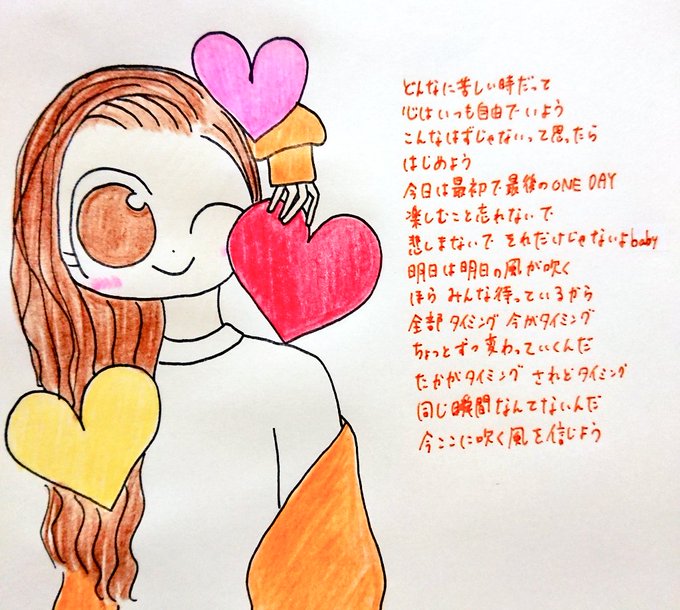 どんなに苦しい時だって
心はいつも自由でいよう
こんなはずじゃないって思ったら
はじめよう
今日は最初で最後のONE DAY
楽しむこと忘れないで
悲しまないで それだけじゃないよbaby
明日は明日の風が吹く
ほら みんな待っているから
全部タイミング 今がタイミング
ちょっとずつ変わっていくんだ
たかがタイミング されどタイミング
同じ瞬間なんてないんだ
今ここに吹く風を信じよう